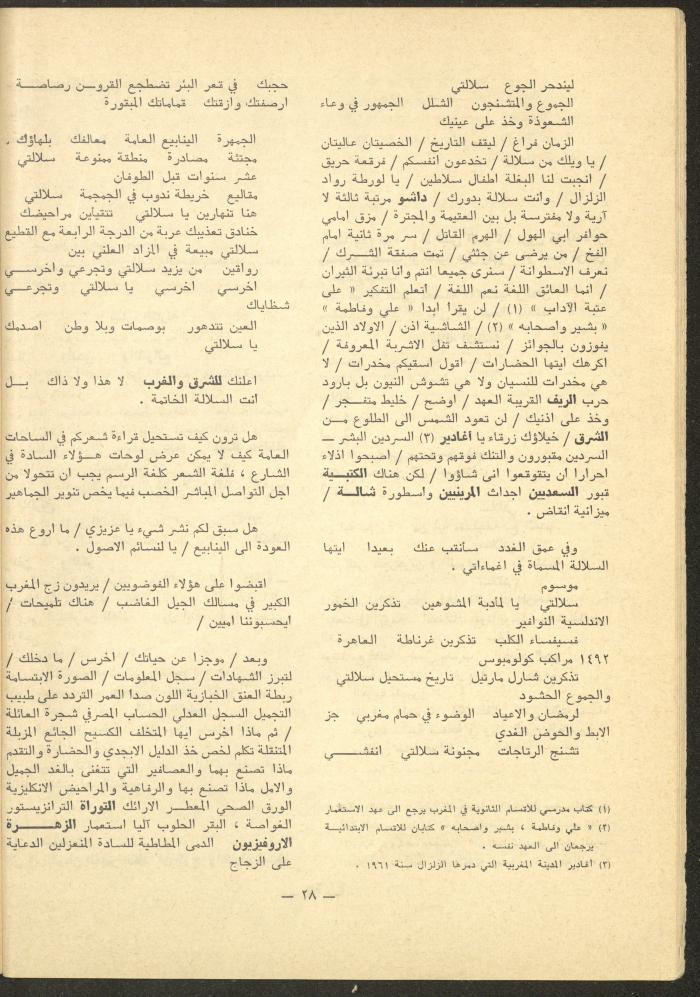 ليندحر الجوع سلالتي
الجموع والمتشنجون الشلل الجمهور في وعاء
الشعوذة وخذ على عينيك
الزمان فراغ / ليقف التاريخ / الخصيتان عاليتان
/ يا ويلك من سلالة / تخدعون انفسكم / فرقعة حريق
/ انجبت لنا البغلة اطفال سلاطين / يا لورطة رواد
الزلزال / وانت سلالة بدورك / داشو مرتبة ثالثة لا
آرية ولا مفترسة بل بين العقيمة والمجترة / مزق امامي
حوافر ابي الهول / الهرم القاتل / سر مرة ثانية امام
الفخ / من يرضى عن جثتي / تمت صفقة الشرك /
نعرف الاسطوانة / سنرى جميعا انتم وانا تبرئة الثيران
/ انما العائق اللغة نعم اللغة / أتعلم التفكير « على
عتبة الآداب » (١) / لن يقرأ ابدا « علي وفاطمة »
« بشير واصحابه » (٢) / الشاشية اذن / الاولاد الذين
يفوزون بالجوائز / نستشف تفل الاشربة المعروفة /
اكرهك ايتها الحضارات / اقول اسقيكم مخدرات / لا
هي مخدرات للنسيان ولا هي تشوش النيون بل بارود
حرب الريف القريبة العهد / اوضح / خليط متفجر /
وخذ على اذنيك / لن تعود الشمس الى الطلوع من
الشرق / خيلاؤك زرقاء يا أغادير (٣) السردين البشر ــ
السردين مقبورون والتنك فوقهم وتحتهم / اصبحوا اذلاء
احرارا ان يتقوقعوا انى شاؤوا / لكن هناك الكتبية
قبور السعديين اجداث المرينيين واسطورة شالة /
ميزانية انقاض .
وفي عمق الغدد سأنقب عنك بعيدا ايتها
السلالة المسماة في اغماءاتي .
موسوم
سلالتي يا لمأدبة المشوهين تذكرين الخمور
الاندلسية النوافير
فسيفساء الكلب تذكرين غرناطة العاهرة
١٤٩٢ مراكب كولومبوس
تذكرين شارل مارتيل تاريخ مستحيل سلالتي
والجموع الحشود
لرمضان والاعياد الوضوء في حمام مغربي جز
الابط والحوض الغدي
تشنج الرتاجات مجنونة سلالتي انفشي
(١) كتاب مدرسي للاقسام الثانوية في المغرب يرجع الى عهد الاستعمار
(٢) « علي وفاطمة ، بشير واصحابه » كتابان للاقسام الابتدائية
يرجعان الى العهد نفسه .
(٣) أغادير المدينة المغربية التي دمرها الزلزال سنة ١٩٦١ .
حجبك في قعر البئر تضطجع القرون رصاصة
ارصفتك وازقتك قماماتك المبقورة
الجمهرة الينابيع العامة معالفك بلهاؤك .
مجتثة مصادرة منطقة ممنوعة سلالتي
عشر سنوات قبل الطوفان
مقاليع خريطة ندوب في الجمجمة سلالتي
هنا تنهارين يا سلالتي تتقيأين مراحيضك
خنادق تعذيبك عربة من الدرجة الرابعة مع القطيع
سلالتي مبيعة في المزاد العلني بين
رواقين من يزيد سلالتي وتجرعي واخرسي
اخرسي اخرسي يا سلالتي وتجرعي
شظاياك
العين تتدهور بوصمات وبلا وطن اصدمك
يا سلالتي
اعلنك للشرق والغرب لا هذا ولا ذاك بل
انت السلالة الخاتمة .
هل ترون كيف تستحيل قراءة شعركم في الساحات
العامة كيف لا يمكن عرض لوحات هؤلاء السادة في
الشارع ، فلغة الشعر كلغة الرسم يجب ان تتحولا من
اجل التواصل المباشر الخصب فيما يخص تنوير الجماهير
هل سبق لكم نشر شيء يا عزيزي / ما اروع هذه
العودة الى الينابيع / يا لنسائم الاصول .
اقبضوا على هؤلاء الفوضويين / يريدون زج المغرب
الكبير في مسالك الجيل الغاضب / هناك تلميحات /
ايحسبوننا اميين /
وبعد / موجزا عن حياتك / اخرس / ما دخلك /
لتبرز الشهادات / سجل المعلومات / الصورة الابتسامة
ربطة العنق الخبازية اللون صدا العمر التردد على طبيب
التجميل السجل العدلي الحساب المصرفي شجرة العائلة
/ ثم ماذا اخرس ايها المتخلف الكسيح الجائع المزبلة
المتنقلة تكلم لخص خذ الدليل الابجدي والحضارة والتقدم
ماذا تصنع بهما والعصافير التي تتغنى بالغد الجميل
والامل ماذا تصنع بها والرفاهية والمراحيض الانكليزية
الورق الصحي المعطر الارائك التوراة الترانزيستور
الغواصة ، البقر الحلوب آليا استعمار الزهرة
الاروفيزيون الدمى المطاطية للسادة المنعزلين الدعاية
على الزجاج
ــ ٢٨ ــ